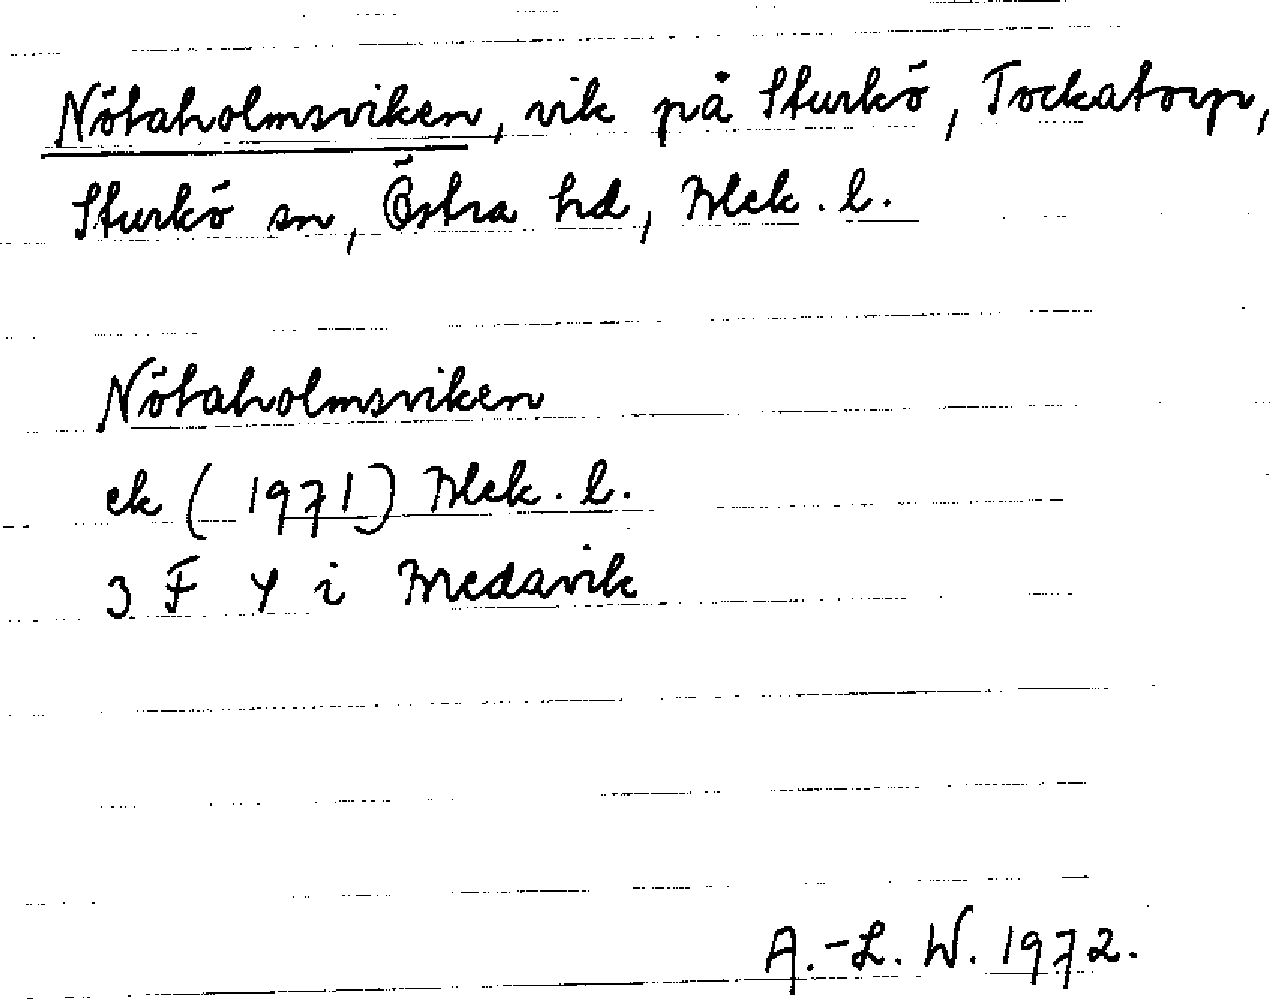 Nötaholmsviken, vik på Sturkö, Tockatorp,
Sturkö sn, Östra hd, Blek. l.
Nötaholmsviken
ek (1971) Blek. l.
3 F 4 i Bredavik
A.-L. W. 1972.